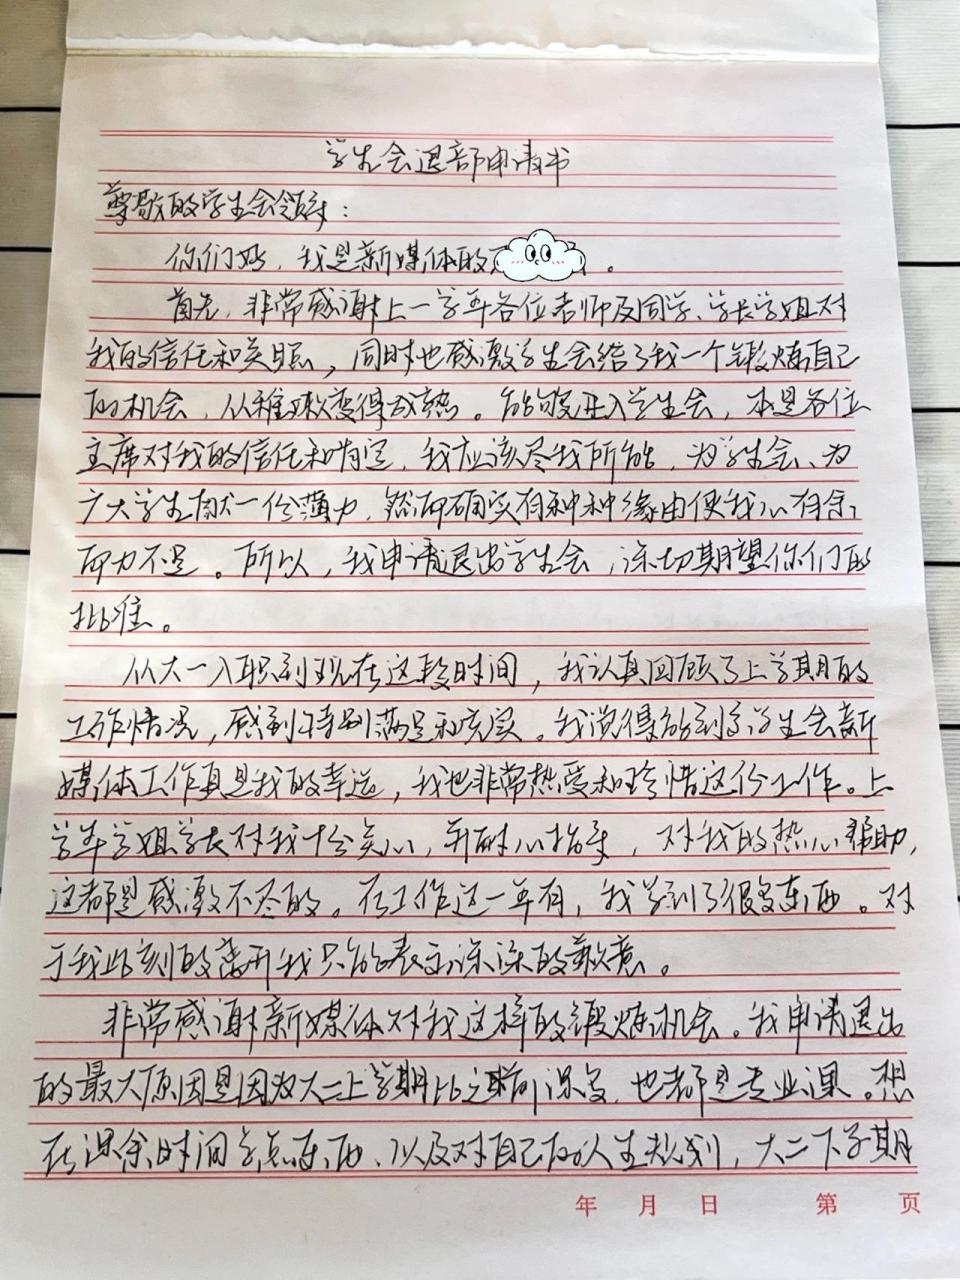 学生会退部申请书
尊敬的学生会领导：
你们好，我是新媒体的。
首先，非常感谢上一学年各位老师及同学、学长学姐对
我的信任和关照，同时也感激学生会给了我一个锻炼自己
的机会，从稚嫩变得成熟。能够进入学生会，本是各位
主席对我的信任和肯定，我应该尽我所能，为学生会、为
广大学生献一份薄力，然而确实有种种缘由使我心有余
而力不足。所以，我申请退出学生会，深切期望你们的
批准。
从大一入职到现在这段时间，我认真回顾了上学期的
工作情况，感到特别满足和充实。我觉得能到了学生会新
媒体工作真是我的幸运，我也非常热爱和珍惜这份工作。上
学年学姐学长对我十分关心，并耐心指导，对我的热心帮助，
这都是感激不尽的。在工作这一年有，我学到了很多东西。对
于我此刻的离开我只能表示深深的歉意。
非常感谢新媒体对我这样的锻炼机会。我申请退出
的最大原因是因为大二上学期比之前课多，也都是专业课。想
在课余时间学点东西、以及对自己的人生规划，大二下学期
年 月 日 第 页